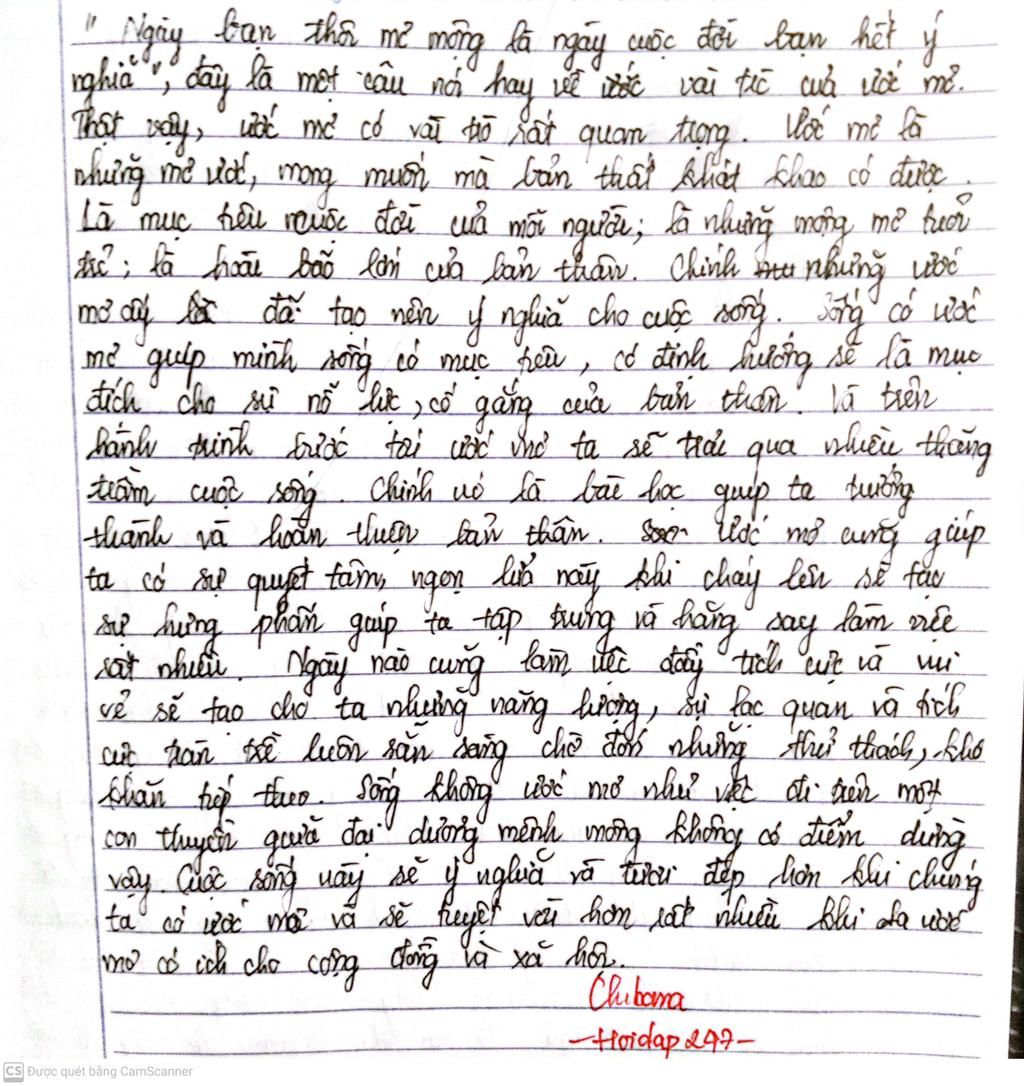 " Ngày bạn thôi mơ mộng là ngày cuộc đời bạn hết ý
nghĩa", đây là một câu nói hay về ước vai trò của ước mơ.
Thật vậy, ước mơ có vai trò rất quan trọng. Ước mơ là
những mơ ước, mong muốn mà bản thân khát khao có được.
Là mục tiêu cuộc đời của mỗi người; là những mộng mơ tuổi
trẻ; là hoài bão lớn của bản thân. Chính những ước
mơ ấy đã tạo nên ý nghĩa cho cuộc sống. Sống có ước
mơ giúp mình sống có mục tiêu, có định hướng sẽ là mục
đích cho sự nỗ lực, cố gắng của bản thân. Và trên
hành trình bước tới ước mơ ta sẽ trải qua nhiều thăng
trầm cuộc sống. Chính nó là bài học giúp ta trưởng
thành và hoàn thiện bản thân. Ước mơ cũng giúp
ta có sự quyết tâm, ngọn lửa này khi cháy lên sẽ tạo
sự hưng phấn giúp ta tập trung và hăng say làm việc
rất nhiều. Ngày nào cũng làm việc đầy tích cực và vui
vẻ sẽ tạo cho ta những năng lượng, sự lạc quan và tích
cực tràn trề luôn sẵn sàng chờ đón những thử thách, khó
khăn tiếp theo. Sống không ước mơ như việc đi trên một
con thuyền giữa đại dương mênh mông không có điểm dừng
vậy. Cuộc sống này sẽ ý nghĩa và tươi đẹp hơn khi chúng
ta có ước mơ và sẽ tuyệt vời hơn rất nhiều khi ước
mơ có ích cho cộng đồng và xã hội.
Chibana
-Hoidap247-
CS Được quét bằng CamScanner